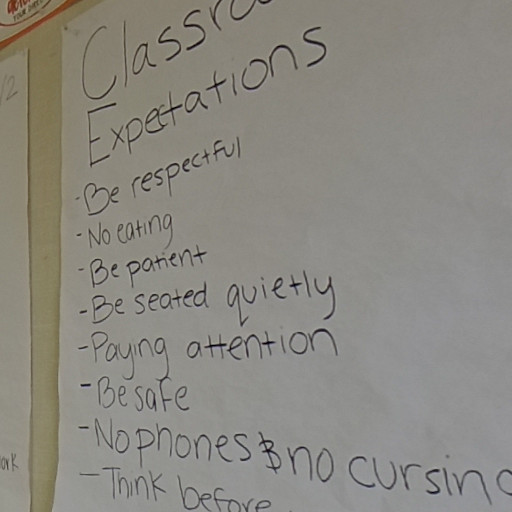 Classro
Expectations
-Be respectful
-No eating
-Be patient
-Be seated quietly
-Paying attention
-Be safe
-No phones & no cursing
-Think before
/2
ork